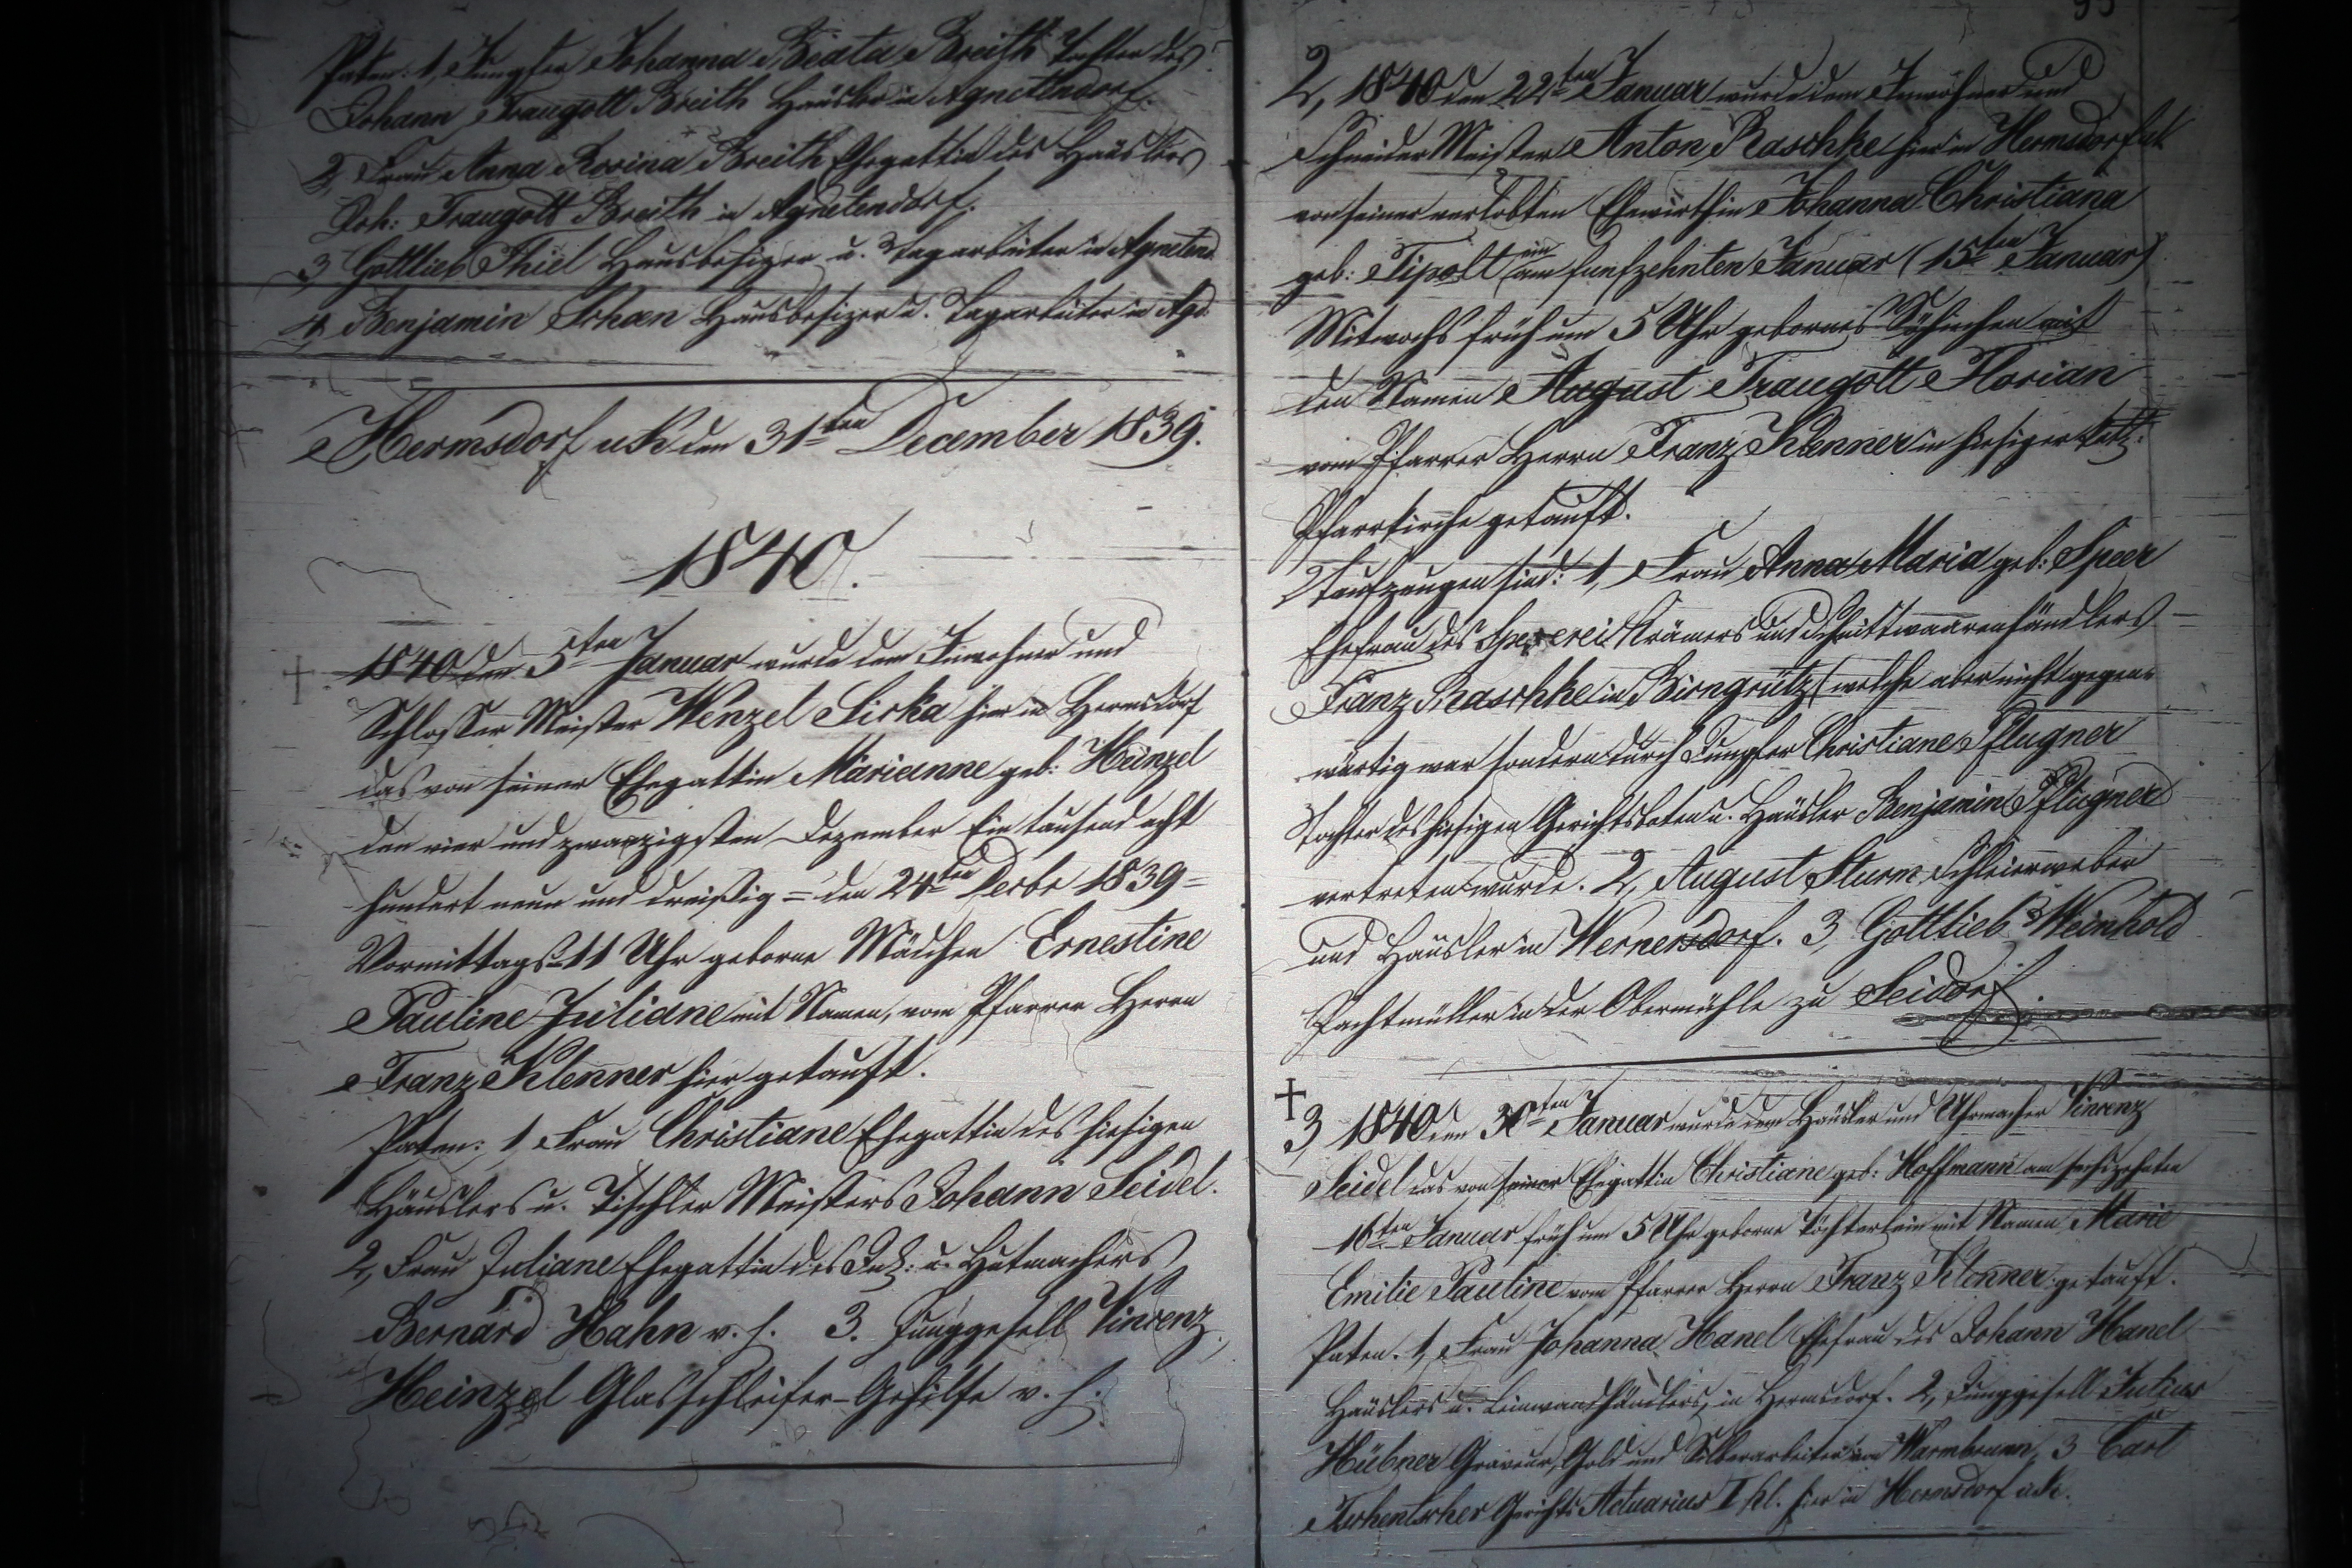 Paten: 1, Jungfer Johanna Beata Breith Tochter des
Johann Traugott Breith Häusler in Agnetendorf.
2, Frau Anna Rosina Breith Ehegattin des Häuslers
Joh: Traugott Breith in Agnetendorf.
3, Gottlieb Thiel Hausbesizer u. Tagarbeiter in Agnetend
4, Benjamin Hausbesizer u. Tagarbeiter in Agd.
Hermsdorf u/K den 31ten December 1839.
1840.
1840 den 5ten Januar wurde dem Inwohner und
Schlosser Meister Wenzel Sirka hier in Hermsdorf
das von seiner Ehegattin Marianne geb: Hainzel
den vier und zwanzigsten Dezember Ein tausend acht
hundert neun und dreißig = den 24ten Decbr 1839 =
Vormittags 11 Uhr geborne Mädchen Ernestine
Pauline Juliane mit Namen, vom Pfarrer Herrn
Franz Klenner hier getauft.
Paten: 1, Frau Christiane Ehegattin des hiesigen
Häuslers u. Tischler Meisters Johann Seidel.
2, Frau Juliane Ehegattin des u. Hutmachers
Bernard Hahn v. h. 3. Junggesell Vincenz
Heinzel Glasschleifer-Gehilfe v. h.
2, 1840 den 22ten Januar wurde dem Inwohner und
Schneider Meister Anton Raschke hier in Hermsdorf
von seiner verlobten Ehewirthin Johanna Christiana
geb: Tipolt ein am funfzehnten Januar (15ten Januar)
Mitwochs früh um 5 Uhr gebornes Söhnchen mit
den Namen August Traugott Florian
vom Pfarrer Herrn Franz Klenner in hiesiger kath:
Pfarrkirche getauft.
Taufzeugen sind: 1, Frau Anna Maria geb: Speer
Ehefrau des Spezereikrämers und Schnittwaarenhändlers
Franz Raschke in Birngrütz (welche aber nicht gegen=
wärtig war sondern durch Jungfer Christiane Pflugner
Tochter des hiesigen Gerichtsboten u. Häusler Benjamin Pflugner
vertreten wurde. 2, August Sturm Schleierweber
und Häusler in Wernersdorf. 3, Gottlieb Weinhold
Pachtmüller in der Obermühle zu Seidorf.
3, 1840 den 30ten Januar wurde dem Häusler und Uhrmacher Vincenz
Seidel das von seiner Ehegattin Christiane geb: Hoffmann am sechszehnten
16ten Januar früh um 5 Uhr geborne Töchterlein mit Namen Marie
Emilie Pauline vom Pfarrer Herrn Franz Klenner getauft.
Paten. 1, Frau Johanna Hanel Ehefrau des Johann Hanel
Häuslers u. Leinwandhändlers, in Hermsdorf. 2, Junggesell Julius
Hübner Graveur, Gold und Silberarbeiter in Warmbrunn, 3 Carl
Gerichts Actuarius I Kl. hier in Hermsdorf u/K.